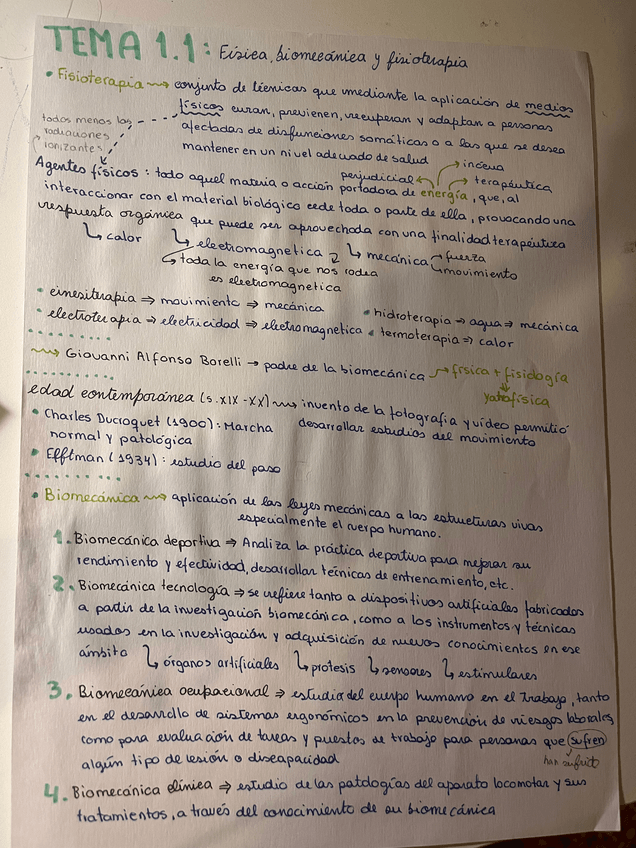 TEMA 1.1: Física, biomecánica y fisioterapia
• Fisioterapia → conjunto de técnicas que mediante la aplicación de medios
físicos curan, previenen, recuperan y adaptan a personas
afectadas de disfunciones somáticas o a las que se desea
mantener en un nivel adecuado de salud
todos menos las
radiaciones
ionizantes
inocua
perjudicial
terapéutica
Agentes físicos: todo aquel materia o acción portadora de energía, que, al
interaccionar con el material biológico cede toda o parte de ella, provocando una
respuesta orgánica que puede ser aprovechada con una finalidad terapéutica
↳ calor
↳ electromagnetica
↳ mecánica
fuerza
movimiento
↳ toda la energía que nos rodea
es electromagnetica
• cinesiterapia ⇒ movimiento ⇒ mecánica
• hidroterapia → agua ⇒ mecánica
• electroterapia ⇒ electricidad ⇒ electromagnetica
• termoterapia ⇒ calor
→ Giovanni Alfonso Borelli → padre de la biomecánica → física + fisiología
yatrofísica
edad contemporánea (s. XIX - XX) → invento de la fotografía y vídeo permitió
desarrollar estudios del movimiento
• Charles Ducroquet (1900): Marcha
normal y patológica
• Efftman (1934): estudio del paso
• Biomecánica → aplicación de las leyes mecánicas a las estructuras vivas
especialmente el cuerpo humano.
1. Biomecánica deportiva ⇒ Analiza la práctica deportiva para mejorar su
rendimiento y efectividad, desarrollar técnicas de entrenamiento, etc.
2. Biomecánica tecnología ⇒ se refiere tanto a dispositivos artificiales fabricados
a partir de la investigación biomecánica, como a los instrumentos y técnicas
usados en la investigación y adquisición de nuevos conocimientos en ese
ámbito ↳ órganos artificiales ↳ protesis ↳ sensores ↳ estimulares
3. Biomecánica ocupacional ⇒ estudia del cuerpo humano en el trabajo, tanto
en el desarrollo de sistemas ergonómicos en la prevención de riesgos laborales,
como para evaluación de tareas y puestos de trabajo para personas que sufren
algún tipo de lesión o discapacidad
han sufrito
4. Biomecánica clínica ⇒ estudio de las patologías del aparato locomotor y sus
tratamientos, a través del conocimiento de su biomecánica